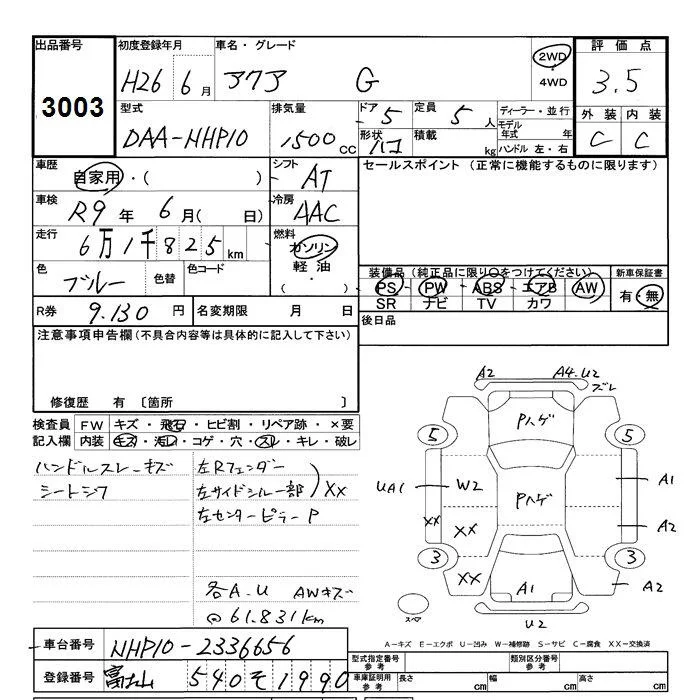 出品番号
3003
初度登録年月
H26 6 月
車名・グレード
アクア G
2WD
・
4WD
評価点
3.5
型式
DAA-NHP10
排気量
1500 CC
ドア 5
形状 ハコ
定員 5 人
積載 kg
ディーラー・並行
モデル年式 年
ハンドル 左・右
外装 内装
C C
車歴
自家用・( )
シフト
AT
セールスポイント (正常に機能するものに限ります)
車検
R9 年 6 月( 日)
冷房
AAC
走行
6万1千825 km
燃料
ガソリン
軽油
( ・ )
色
ブルー
色替
色コード
装備品(純正品に限り○をつけてください)
新車保証書
PS・PW・ABS・エアB・AW
SR ナビ TV カワ
有・無
R券 9.130 円
名変期限 月 日
後日品
注意事項申告欄(不具合内容等は具体的に記入して下さい)
修復歴 有 〔箇所 〕
検査員記入欄
FW キズ・飛石・ヒビ割・リペア跡・×要
内装 キズ・汚レ・コゲ・穴・スレ・キレ・破レ
ハンドルスレ・キズ
シートシワ
左Rフェンダー
左サイドシル一部
左センターピラーP
XX
各A.U AWキズ
@61.831km
A2 A4.U2
ズレ
Pハゲ
5 5
UA1 W2 Pハゲ A1
XX XX A2
3 3
XX A1 A2
スペア
U2
A-キズ E-エクボ U-凹み W-補修跡 S-サビ C-腐食 XX-交換済
車台番号 NHP10-2336656
登録番号 富士山 540 そ 1990
型式指定番号
参考
類別区分番号
参考
車庫証明用
参考
長さ cm
幅 cm
高さ cm